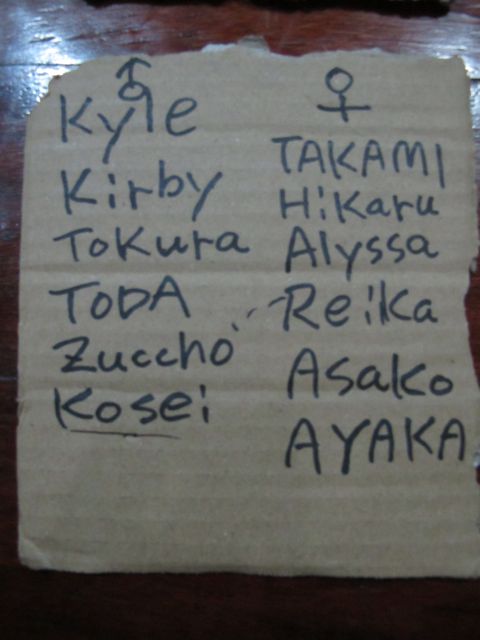 ♂
Kyle
Kirby
Tokura
TODA
Zuccho
Kosei
♀
TAKAMI
Hikaru
Alyssa
Reika
Asako
AYAKA